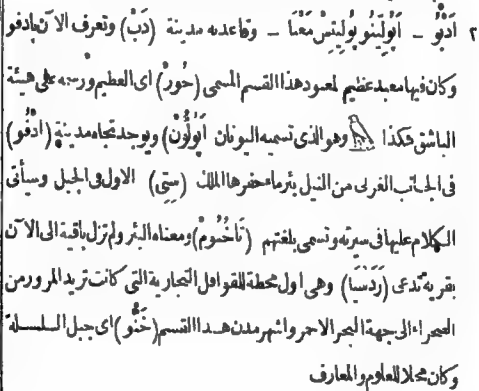 ٢ اَدْبُو ـ اَپُولِّينُو پُولِيتِسْ مَغْنَا ـ وقاعدته مدينة (دَبْ) وتعرف الآن بادفو
وكان فيها معبد عظيم لمعبود هذا القسم المسمى (حُورْ) اى العظيم ورسمه على هيئة
الباشق هكذا وهو الذى تسميه اليونان اَپولُّونْ) ويوجد تجاه مدينة (ادْفُو)
فى الجانب الغربى من النيل بئر ماء حفرها الملك (ستِى) الاول فى الجبل وسيأتى
الكلام عليها فى سيرته وتسمى بلغتهم (تَاخْنُومْ) ومعناه البئر ولم تزل باقية الى الآن
بقرية تدعى (رَدَسيَا) وهى اول محطة للقوافل التجارية التى كانت تريد المرور من
الصحراء الى جهة البحر الاحمر واشهر مدن هـذا القسم (خَنُّو) اى جبل السلسلة
وكان محلا للعلوم والمعارف